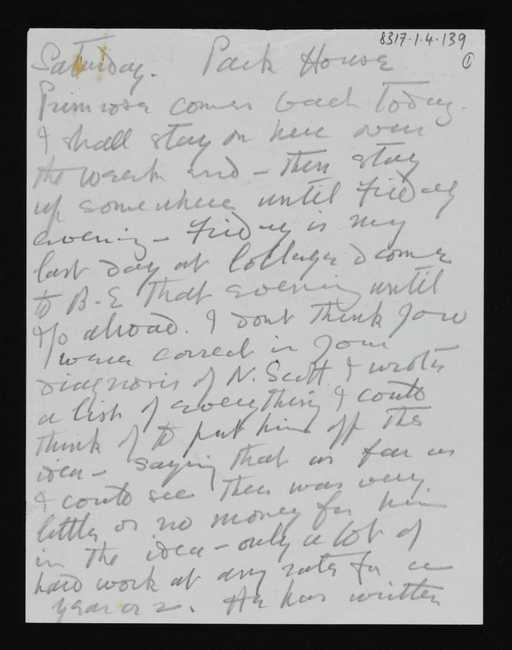 8317·1·4·139
①
Saturday. Park House
Primrose comes back Today.
I shall stay on here over
the week end – then stay
up somewhere until Friday
evening – Friday is my
last day at College & come
to B-E that evening until
I go abroad. I dont think you
were correct in your
diagnosis of N. Scott I wrote
a list of everything I could
think of to put him off the
idea – saying that as far as
I could see there was very
little or no money for him
in the idea – only a lot of
hard work at any rate for a
year or 2. He has written